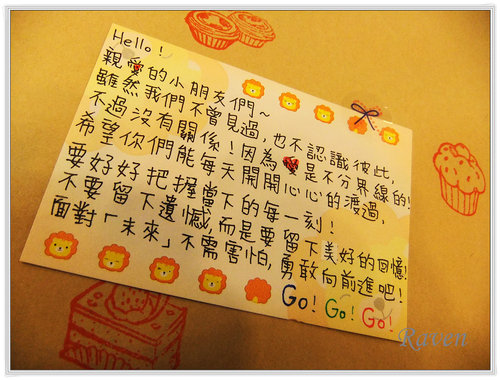 Hello!
親愛的小朋友們~
雖然我們不曾見過,也不認識彼此,
不過沒有關係!因為❤是不分界線的!
希望你們能每天開開心心的渡過,
要好好把握當下的每一刻!
不要留下遺憾,而是要留下美好的回憶!
面對「未來」不需害怕,勇敢向前進吧!
Go! Go! Go!
Raven